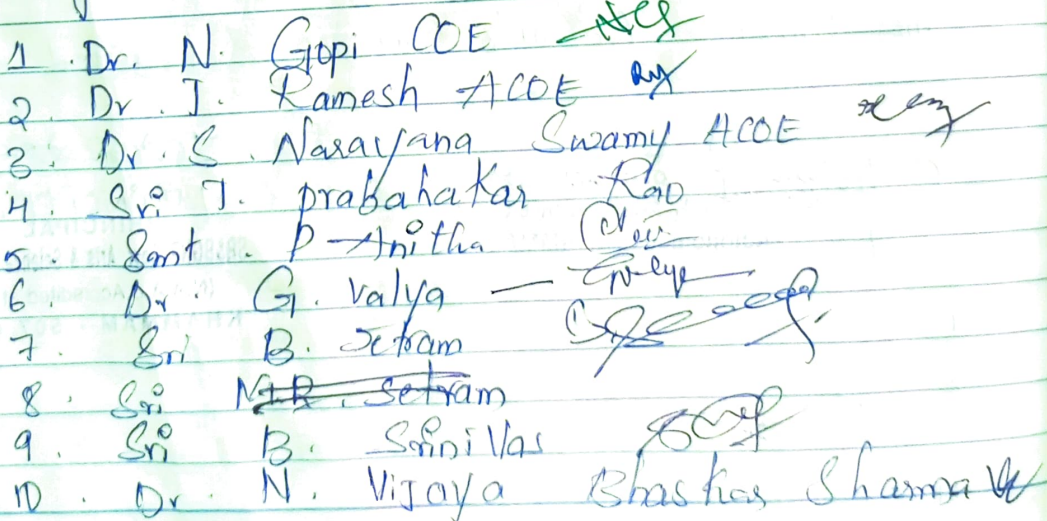 1. Dr. N. Gopi COE
2. Dr. J. Ramesh ACOE
3. Dr. S. Narayana Swamy ACOE
4. Sri J. prabahakar Rao
5. Smt. P. Anitha
6. Dr. G. Valya —
7. Sri B. Jetram
8. Sri Setram
9. Sri B. Srinivas
10. Dr. N. Vijaya Bhaskar Sharma